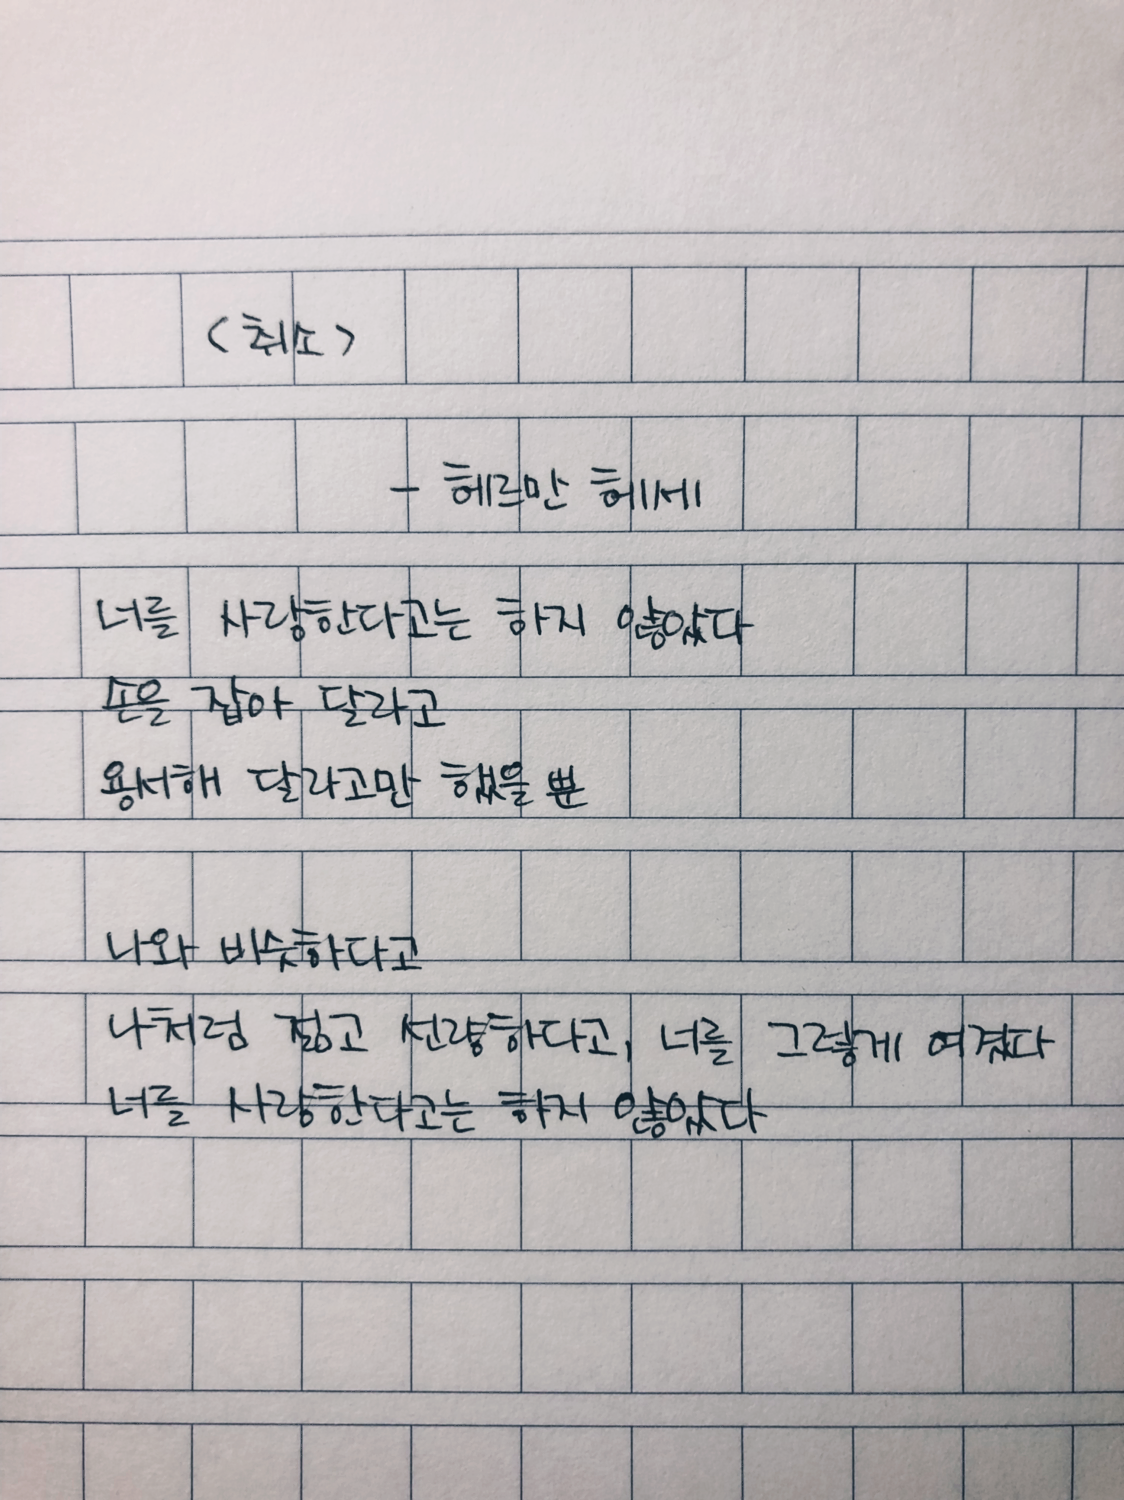 <취소>
- 헤르만 헤세
너를 사랑한다고는 하지 않았다
손을 잡아 달라고
용서해 달라고만 했을 뿐
나와 비슷하다고
나처럼 젊고 선량하다고, 너를 그렇게 여겼다
너를 사랑한다고는 하지 않았다